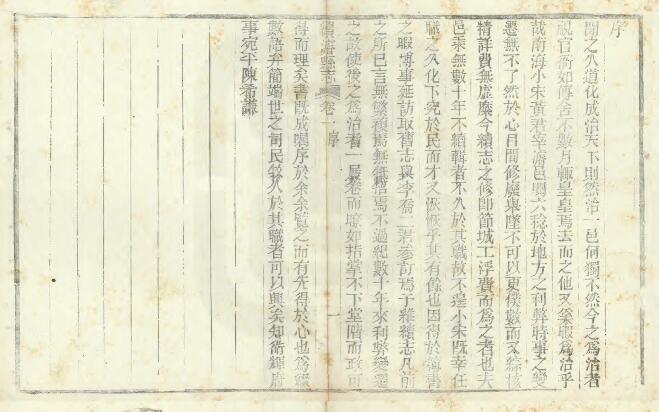 序
聞之久道化成治天下則然治一邑何獨不然今之爲治者
視官衙如傳舍不數月輒皇皇焉去而之他又奚暇爲治乎
哉南海小宋黃君宰濬邑閱六稔於地方之利弊時事之變
惡無不了然於心目間修廢舉墜不可以更僕數而又綜核
精詳費無虛糜今續志之修即節城工浮費而爲之者也夫
邑乘無數十年不續輯者不久於其職故不遑小宋既幸任
職之久化下究於民而才又恢恢乎其有餘也因得於簿書
之暇博事延訪取舊志與李喬二君參訂焉予維續志凡前
之所已言無繁複焉無牴牾焉不過紀數十年來利弊變遷
之故使後之爲治者一展卷而瞭如指掌不下堂階而政可
續濬縣志 卷一序 一
得而理矣書既成囑序於余余覽之而有先得於心也爲綴
數語弁簡端世之司民牧久於其職者可以興矣知衛輝府
事宛平陳希謙